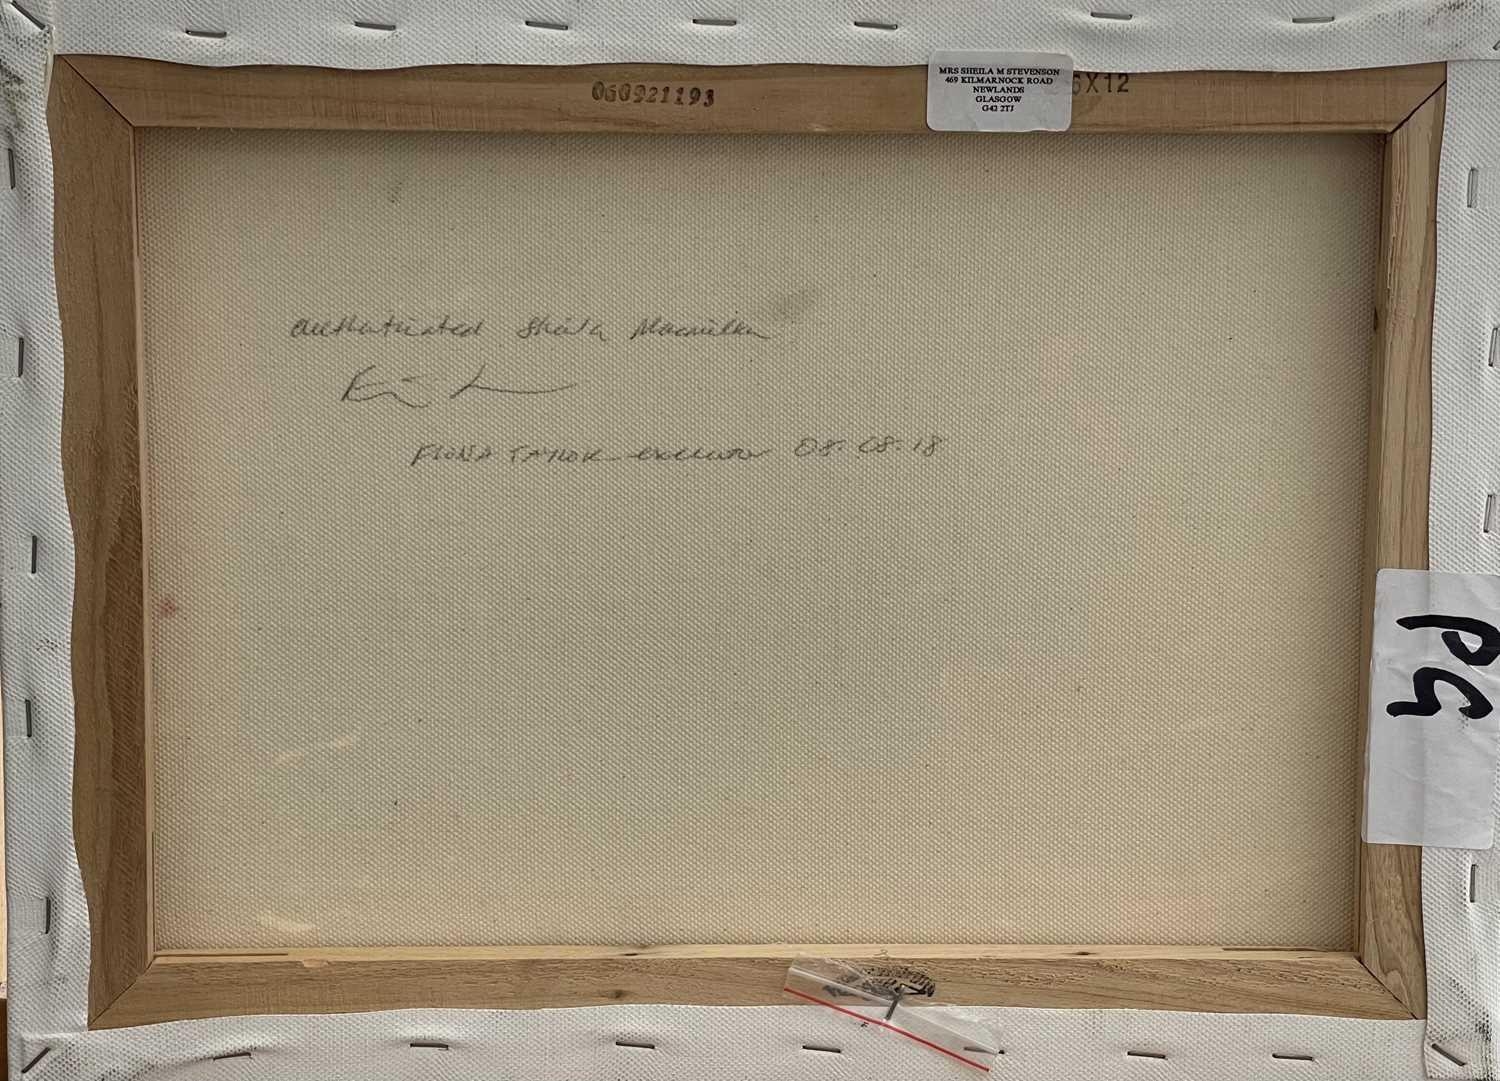 060921193
MRS SHEILA M STEVENSON
469 KILMARNOCK ROAD
NEWLANDS
GLASGOW
G43 2TJ
6X12
authenticated Sheila Macmillan
FIONA TAYLOR executor 08.08.18
PG